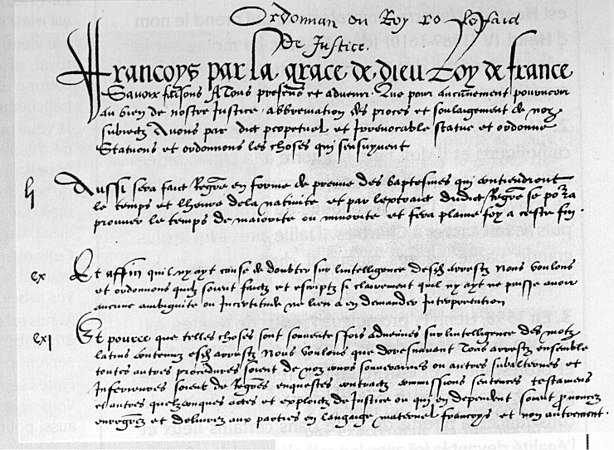 Ordonnan du Roy
de Justice.
Francoys par la grace de dieu Roy de france
Savoir faisons A tous presens et advenir Que pour aucunement pourveoir
au bien de nostre Justice abbreviation des proces et soulaigement de noz
subiectz Avons par edict perpetuel et Irrevocable statue et ordonne
Statuons et ordonnons les choses qui sensuyvent
lj Aussi sera faict Regre en forme de preuve des baptesmes qui contiendront
le temps et lheure de la nativite et par lextraict dudict Regre se pora
prouver le temps de maiorite ou minorite et fera plaine foy a ceste fin.
cx Et affin quil ny ayt cause de doubter sur lintelligence desd arrestz Nous voulons
et ordonnons quilz soient faictz et escriptz si clairement quil ny ayt ne puisse avoir
aucune ambiguite ou Incertitude ne lieu a en demander Interpretation
cxj Et pource que telles choses sont souventesfois advenues sur lintelligence des motz
latins contenuz esd arrestz Nous voulons que doresnavant Tous arrestz ensemble
toutes autres procedures soient de noz cours souveraines ou autres subalternes et
Inferieures soient de Regres enquestes contractz commissions sentences testamens
et autres quelzconques actes et exploictz de Justice ou qui en dependent soient prononcez
enregrez et delivrez aux parties en langaige maternel francoys et non autrement.